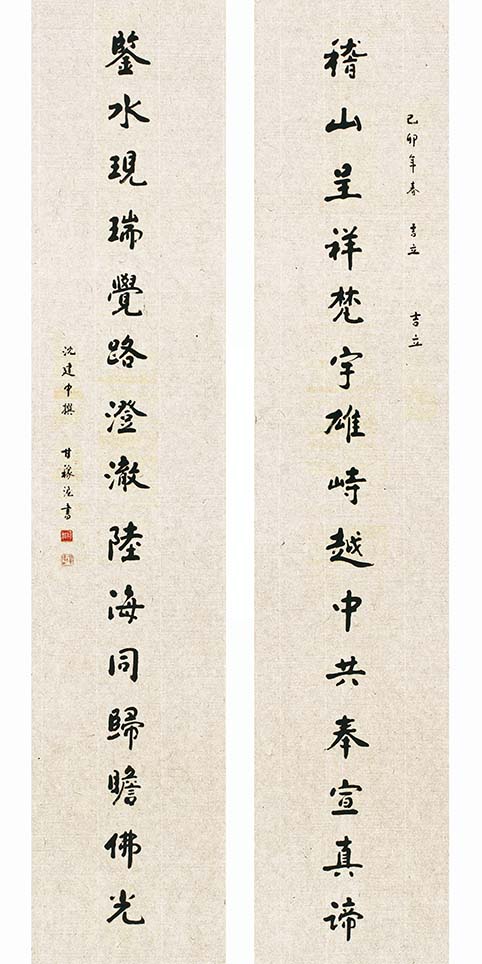 己卯年春 吉立 吉立
稽山呈祥梵宇雄峙越中共奉宣真諦
鑒水現瑞覺路澄澈陸海同歸瞻佛光
沈建中撰 甘稼泥書